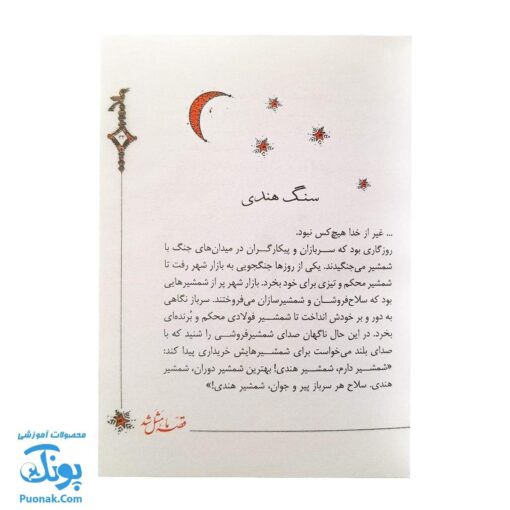 ۲۲
سنگ هندی
... غیر از خدا هیچ‌کس نبود.
روزگاری بود که سربازان و پیکارگران در میدان‌های جنگ با
شمشیر می‌جنگیدند. یکی از روزها جنگجویی به بازار شهر رفت تا
شمشیر محکم و تیزی برای خود بخرد. بازار شهر پر از شمشیرهایی
بود که سلاح‌فروشان و شمشیرسازان می‌فروختند. سرباز نگاهی
به دور و بر خودش انداخت تا شمشیر فولادی محکم و بُرنده‌ای
بخرد. در این حال ناگهان صدای شمشیرفروشی را شنید که با
صدای بلند می‌خواست برای شمشیرهایش خریداری پیدا کند:
«شمشیر دارم، شمشیر هندی! بهترین شمشیر دوران، شمشیر
هندی. سلاح هر سرباز پیر و جوان، شمشیر هندی!»
قصه ما مثل شد
محصولات آموزشی
پونک
Puonak.Com